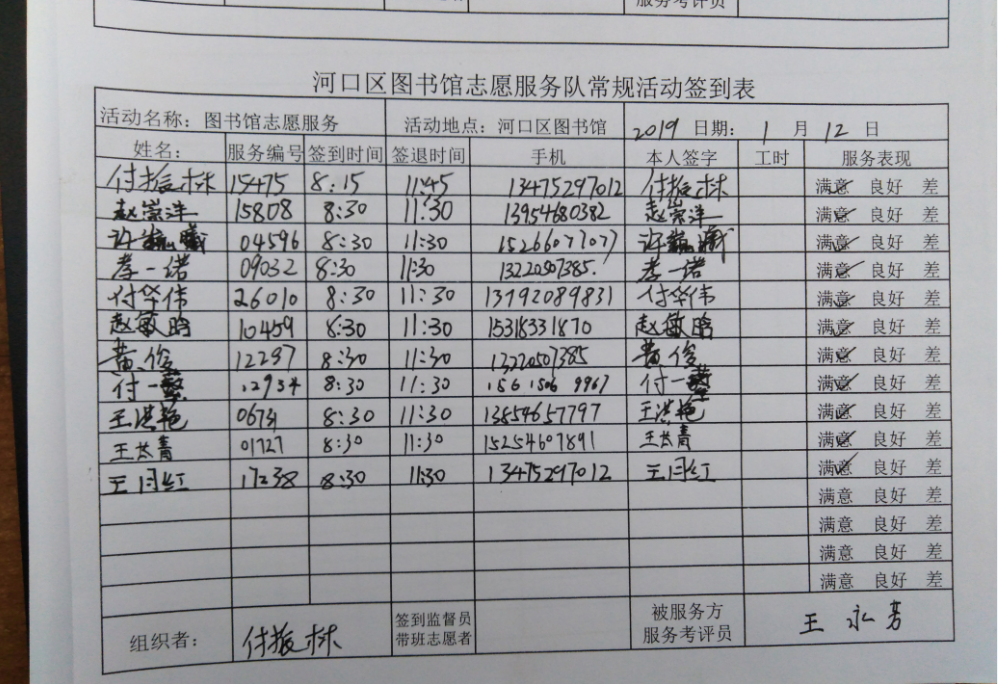 服务考评员
河口区图书馆志愿服务队常规活动签到表
活动名称：图书馆志愿服务 活动地点：河口区图书馆 2019 日期： 1 月 12 日
姓名： 服务编号 签到时间 签退时间 手机 本人签字 工时 服务表现
付振林 15475 8:15 11:45 13475297012 付振林 满意 良好 差
赵崇洋 15808 8:30 11:30 13954680382 赵崇洋 满意 良好 差
许 04596 8:30 11:30 15266077077 许 满意 良好 差
李一诺 09032 8:30 11:30 13220507385. 李一诺 满意 良好 差
付华伟 26010 8:30 11:30 13792089831 付华伟 满意 良好 差
赵敏鹃 10459 8:30 11:30 15318331870 赵敏鹃 满意 良好 差
黄俊 12297 8:30 11:30 13220507385 黄俊 满意 良好 差
付一繁 12934 8:30 11:30 156 1506 9967 付一繁 满意 良好 差
王洪艳 8:30 11:30 13854657797 王洪艳 满意 良好 差
王长青 01727 8:30 11:30 15254607891 王长青 满意 良好 差
王闫红 17238 8:30 11:30 13475297012 王闫红 满意 良好 差
满意 良好 差
满意 良好 差
满意 良好 差
满意 良好 差
组织者： 付振林 签到监督员 被服务方 王永芳
带班志愿者 服务考评员